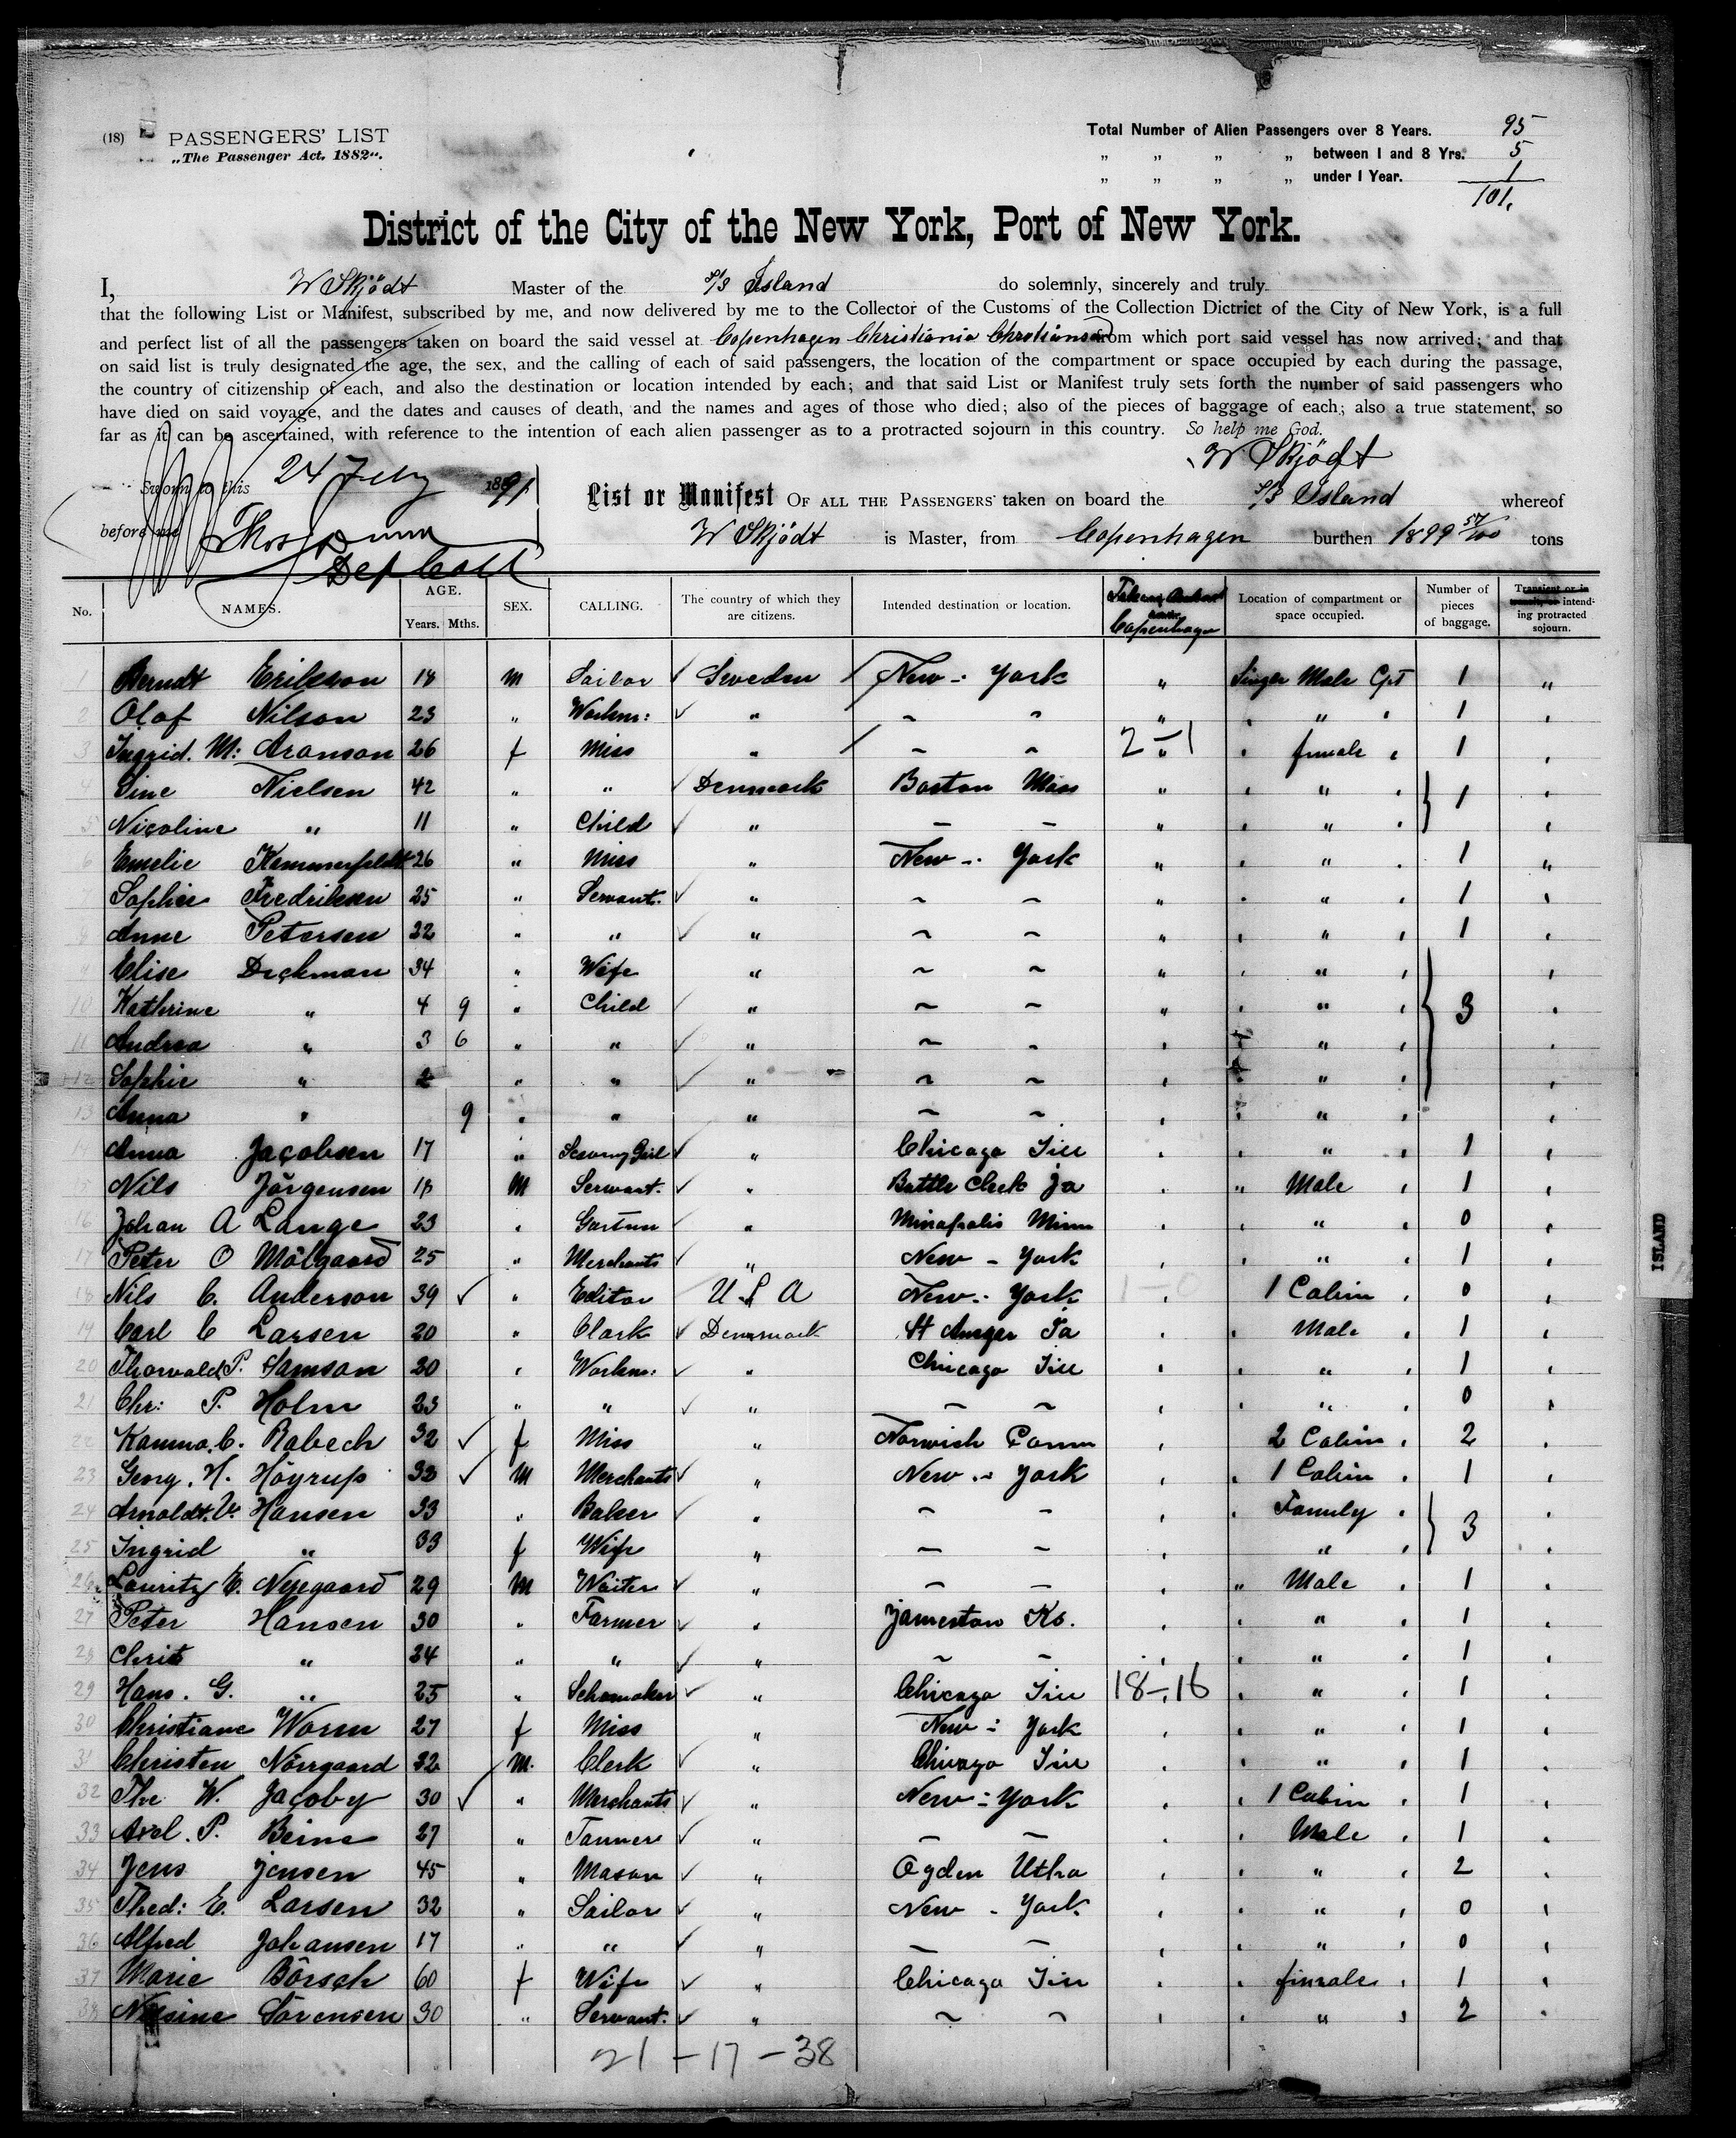 (18) PASSENGERS' LIST
„The Passenger Act. 1882".
Total Number of Alien Passengers over 8 Years. 95
„ „ „ „ between 1 and 8 Yrs. 5
„ „ „ „ under 1 Year. 1
101.
District of the City of the New York, Port of New York.
I, W Skjödt Master of the S/S Island do solemnly, sincerely and truly
that the following List or Manifest, subscribed by me, and now delivered by me to the Collector of the Customs of the Collection District of the City of New York, is a full
and perfect list of all the passengers taken on board the said vessel at Copenhagen Christiania Christiansand from which port said vessel has now arrived; and that
on said list is truly designated the age, the sex, and the calling of each of said passengers, the location of the compartment or space occupied by each during the passage,
the country of citizenship of each, and also the destination or location intended by each; and that said List or Manifest truly sets forth the number of said passengers who
have died on said voyage, and the dates and causes of death, and the names and ages of those who died; also of the pieces of baggage of each; also a true statement, so
far as it can be ascertained, with reference to the intention of each alien passenger as to a protracted sojourn in this country. So help me God.
W Skjödt
Sworn to this 24 Feby 1891
List or Manifest OF ALL THE PASSENGERS taken on board the S/S Island whereof
before me Thos Dunn
W Skjödt is Master, from Copenhagen burthen 1899 57/100 tons
Dep Coll
No. NAMES. AGE. Years. Mths. SEX. CALLING. The country of which they are citizens. Intended destination or location. Copenhagen Location of compartment or space occupied. Number of pieces of baggage. Transient or in transit, or intending protracted sojourn.
1 Berndt Erikson 18 M Sailor Sweden New - York " Singer Male Cpt 1 "
2 Olof Nilson 23 " Workm: " ~ ~ " " " " 1 "
3 Ingrid. M: Aronson 26 f Miss " ~ ~ 2-1 " " female " 1 "
4 Sine Nielsen 42 " " Denmark Boston Mass " " " " 1 "
5 Nicoline " 11 " Child " ~ ~ " " " " "
6 Emelie Kammerfeldt 26 " Miss " New - York " " " 1 "
7 Sophie Fredriksen 25 " Servant. " ~ ~ " " " " 1 "
8 Anne Petersen 22 " " " ~ ~ " " " " 1 "
9 Elise Dickman 34 " Wife " ~ ~ " " " " "
10 Kathrine " 4 9 " Child " ~ ~ " " " " 3 "
11 Andrea " 3 6 " " " ~ ~ " " " " "
12 Sophie " 2 " " " ~ ~ " " " " "
13 Anna " 9 " " " ~ ~ " " " " "
14 Anna Jacobsen 17 " Sewing Girl " Chicago Ill " " " 1 "
15 Nils Jörgensen 18 M Servant. " Battle Creek Ja " " Male " 1 "
16 Johan A Lange 23 " " Minapolis Minn " " " " 0 "
17 Peter O Mölgaard 25 " Merchants " New - York " " " " 1 "
18 Nils C. Anderson 39 " Editor U S A New - York 1-0 " 1 Cabin " 0 "
19 Carl C Larsen 20 " Clark Denmark St Ansgar Ia " " Male " 1 "
20 Thorwald P. Samson 20 " Workm: " Chicago Ill " " " " 1 "
21 Chr: P. Holm 23 " " " ~ ~ " " " " 0 "
22 Kamma. C. Rabech 32 f Miss " Norwich Conn " 2 Cabin " 2 "
23 Georg. H. Höyrup 32 M Merchants " New - York " " 1 Cabin " 1 "
24 Arnoldt. V. Hansen 33 " Baker " ~ ~ " " Family " 3 "
25 Ingrid " 33 f Wife " ~ ~ " " " "
26 Lauritz E. Nyegaard 29 M Waiter " ~ ~ " " Male " 1 "
27 Peter Hansen 30 " Farmer " Jamestown Ks. " " " 1 "
28 Christ " 24 " " " ~ ~ " " " " 1 "
29 Hans. G. " 25 " Schomaker " Chicago Ill 18-16 " " 1 "
30 Christiane Worm 27 f Miss " New - York " " " " 1 "
31 Christen Nörgaard 32 M. Clerk " Chicago Ill " " " " 1 "
32 The W. Jacoby 30 " Merchants " New - York " " 1 Cabin " 1 "
33 Axel. P. Beine 27 " Tanner " ~ ~ " " Male " 1 "
34 Jens Jensen 45 " Mason " Ogden Utha " " " " 2 "
35 Thed: E. Larsen 32 " Sailor " New - York " " " " 0 "
36 Alfred Johansen 17 " " " ~ ~ " " " " 0 "
37 Marie Börsch 60 f Wife " Chicago Ill " " female " 1 "
38 Nilsine Sörensen 30 " Servant. " ~ ~ " " " " 2 "
21 - 17 - 38
ISLAND